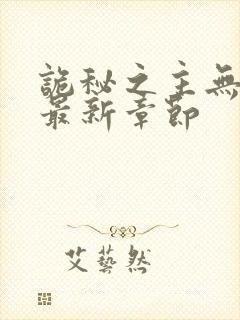 詭秘之主無
最新章節
艾藝然